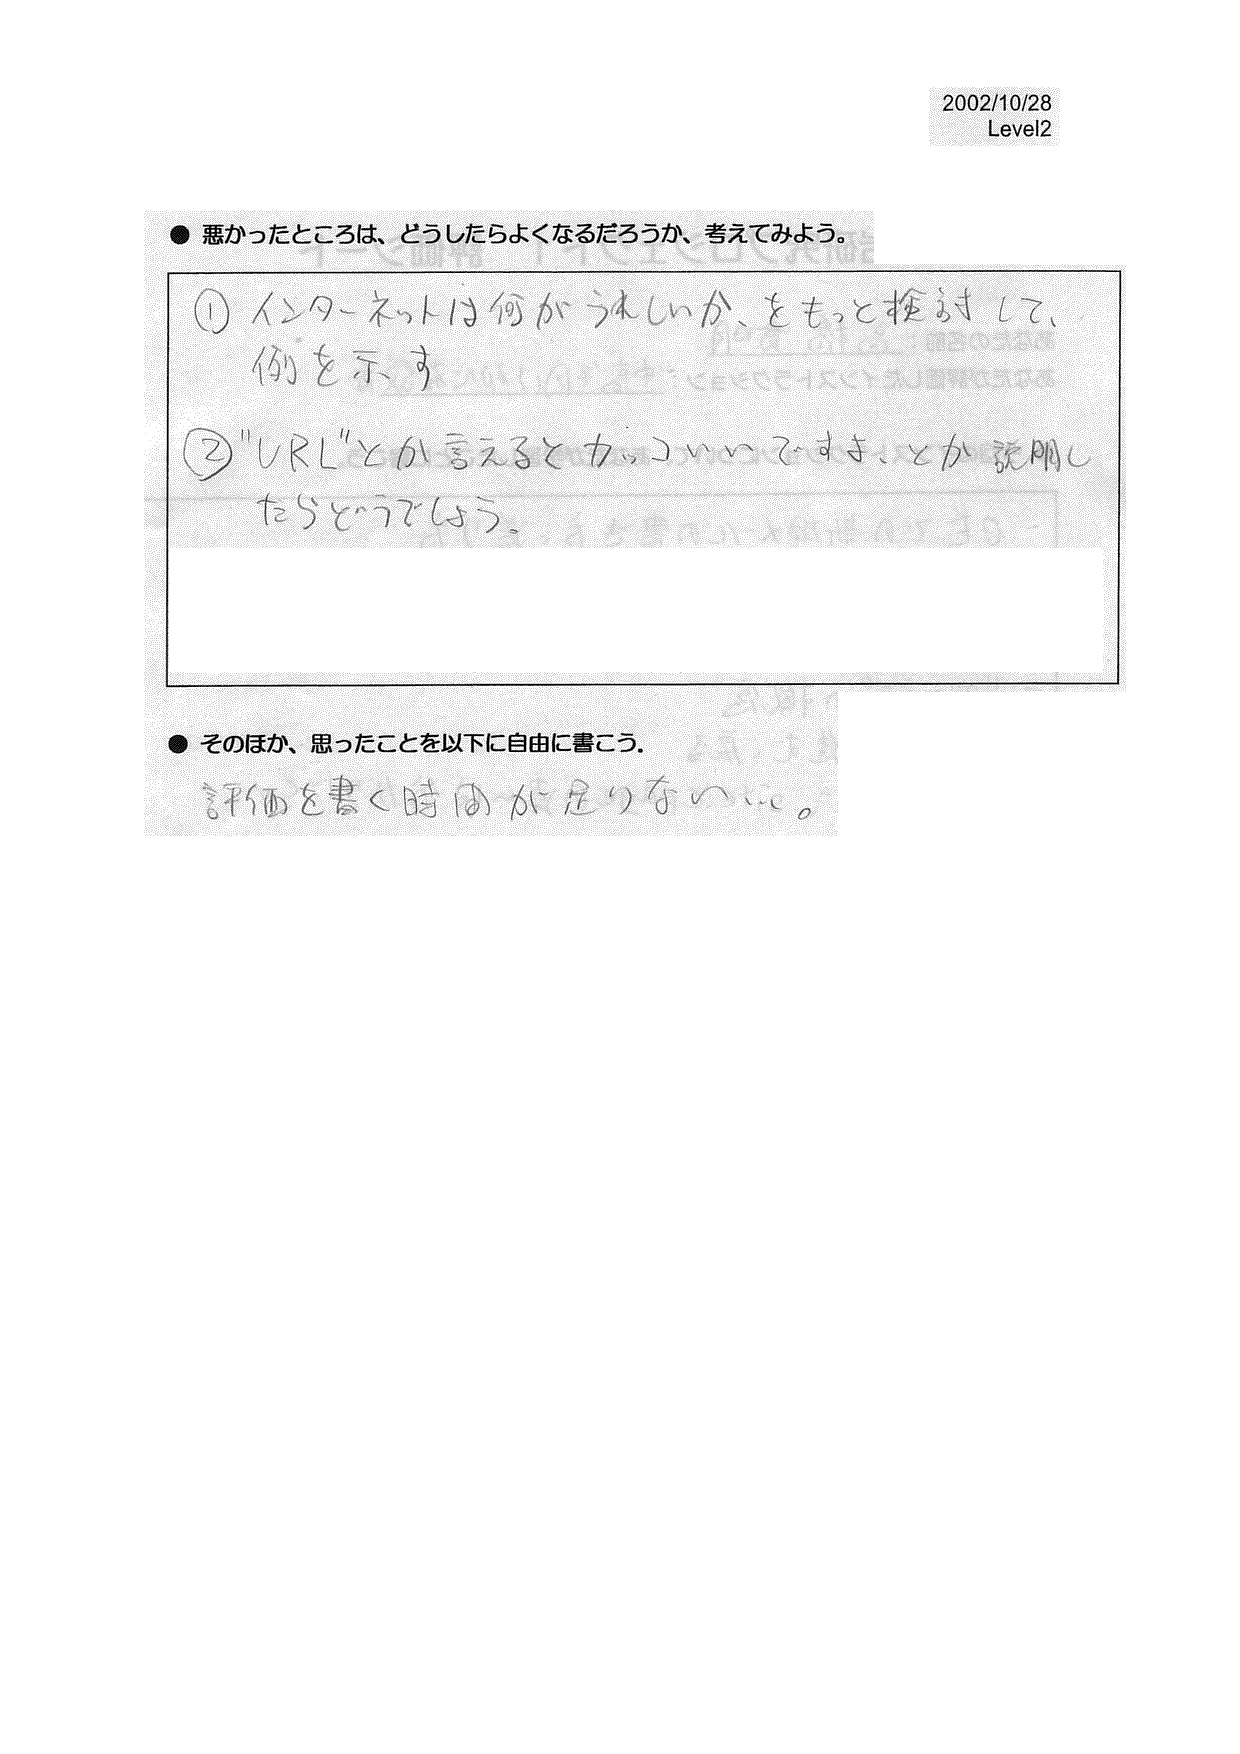 2002/10/28
Level2
● 悪かったところは、どうしたらよくなるだろうか、考えてみよう。
① インターネットは何がうれしいか、をもっと検討して、
例を示す
② "URL"とか言えるとカッコいいですよ、とか説明し
たらどうでしょう。
● そのほか、思ったことを以下に自由に書こう.
評価を書く時間が足りない…。